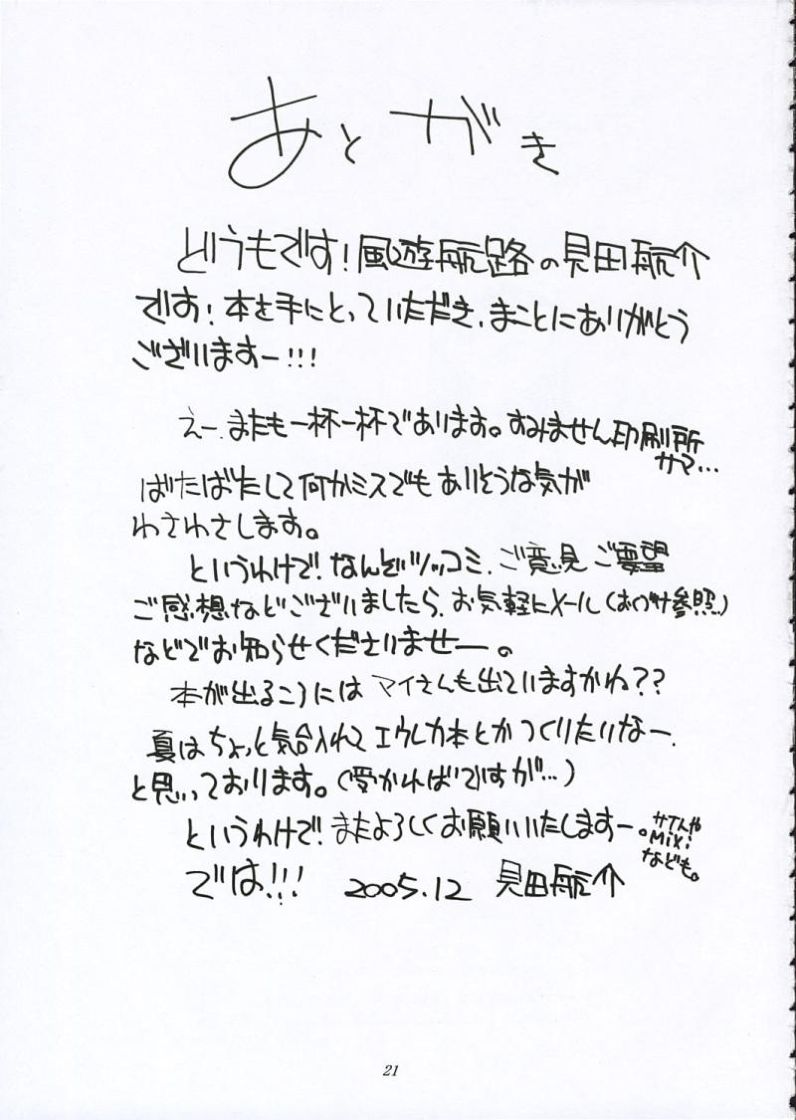 あとがき
どうもです！風遊航路の見田航介
です！本を手にとっていただき、まことにありがとう
ございますー!!!
えー、またも一杯一杯であります。すみません印刷所
サマ…
ばたばたして何かミスでもありそうな気が
わさわさします。
というわけで！なんぞツッコミ、ご意見ご要望
ご感想などございましたら、お気軽にメール（おくづけ参照）
などでお知らせくださいませー。
本が出るころにはマイさんも出ていますかね？？
夏はちょっと気合入れてエウレカ本とかつくりたいなー、
と思いております。（受かればですが…）
というわけで！またよろしくお願いいたしますー。
サイトや
mixi
なども。
では!!! 2005.12 見田航介
21